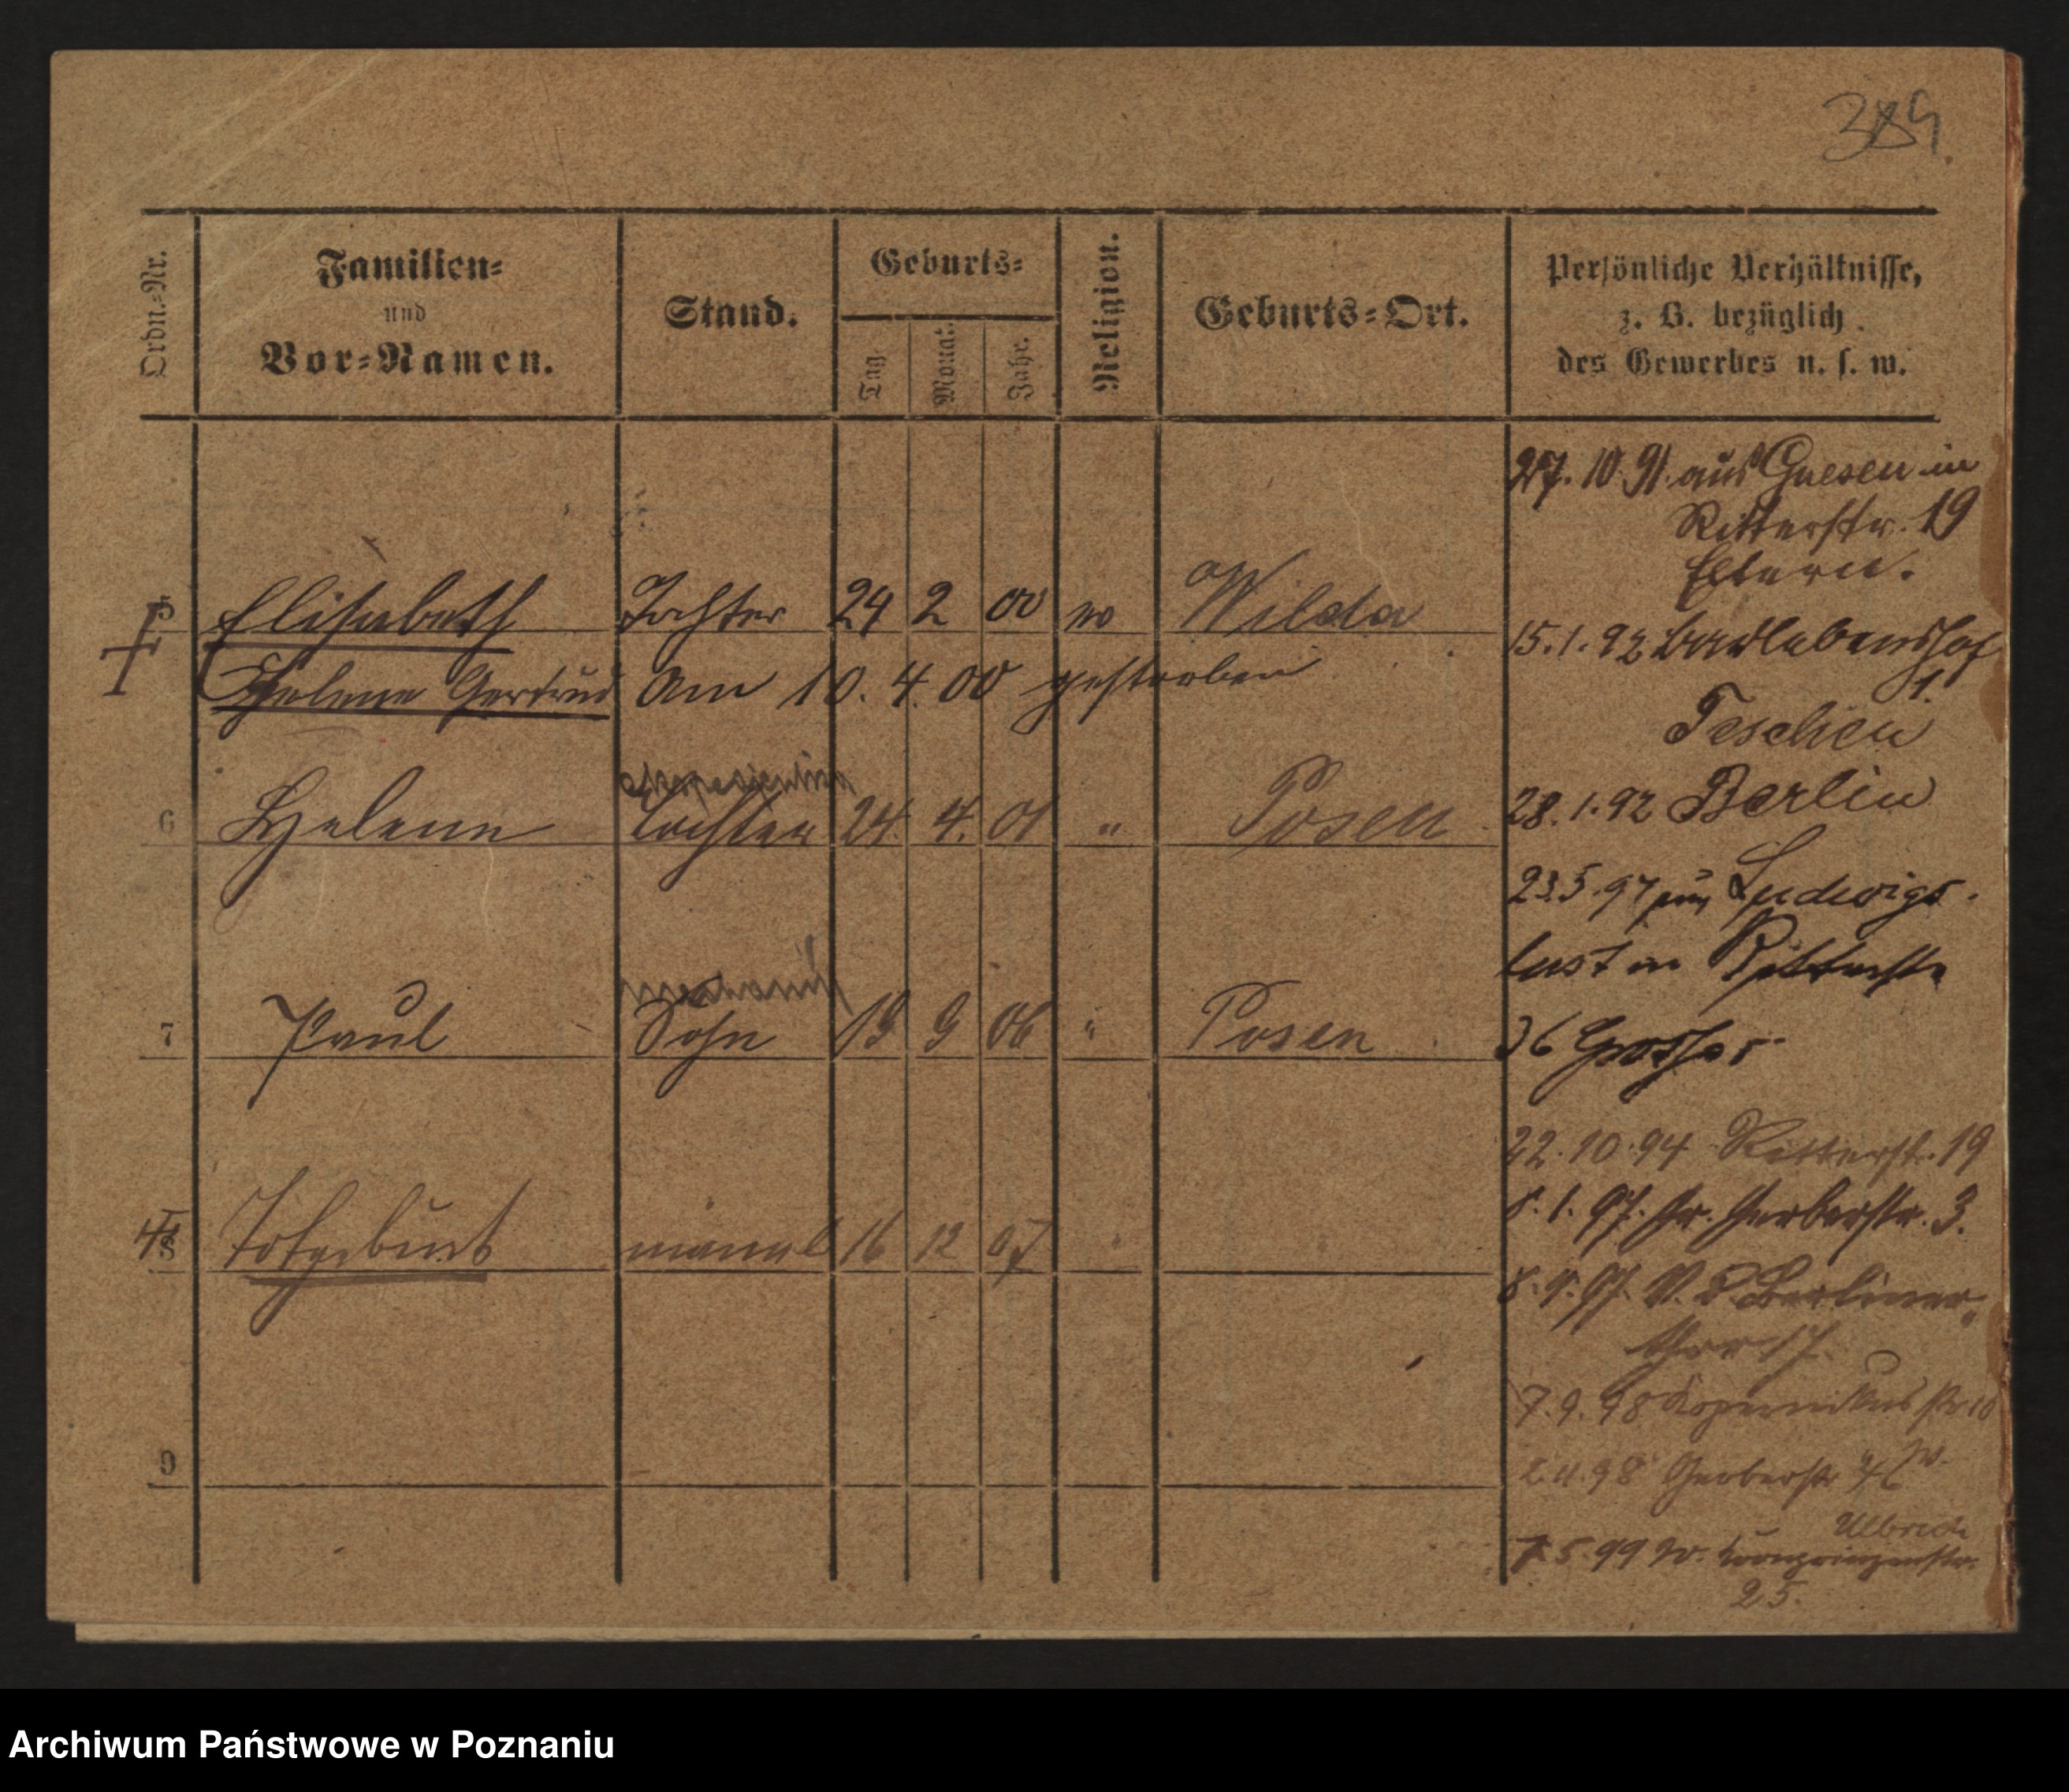 389
Ordn.=Nr.
Familien=
und
Vor=Namen.
Stand.
Geburts=
Tag
Monat.
Jahr.
Religion.
Geburts=Ort.
Persönliche Verhältnisse,
z. B. bezüglich
des Gewerbes u. s. w.
27. 10. 91. aus Gnesen in
Ritterstr. 19
Eltern.
5 Elisabeth Tochter 24 2 00 Wilda
Helene Gertrud Am 10. 4. 00 gestorben
15. 1. 92
1.
Teschen
28. 1. 92 Berlin
6 Helene Tochter 24. 4. 01 " Posen
23. 5. 97 Ludwigs-
lust in
36
7 Paul Sohn 19 9 06 " Posen
22. 10. 94 Ritterstr. 19
8. 1. 97. Gr. Gerberstr. 3.
Totgeburt männl 16 12 07
8. 97. Berliner
thor 17.
7. 9. 98 Kopernikusstr 10
98 Gerberstr
9
Ulbrich
7. 5. 99 W. Kronprinzenstr.
25.
Archiwum Państwowe w Poznaniu